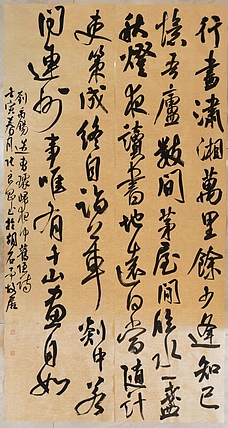 行盡瀟湘萬里餘少逢知己
憶吾廬數間茅屋閒臨水一盞
秋燈夜讀書地遠何當隨計
吏策成終自詣公車剡中若
問連州事唯有千山畫不如
劉禹錫送曹璩歸越中舊隱詩
壬寅春月